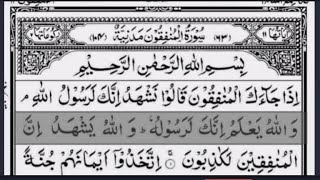 اٰيَاتُهَا ١١ (٦٣) سُوْرَةُ الْمُنٰفِقُوْنَ مَدَنِيَّةٌ (١٠٤) رُكُوْعَاتُهَا ٢
بِسْمِ اللهِ الرَّحْمٰنِ الرَّحِيْمِ
اِذَا جَآءَكَ الْمُنٰفِقُوْنَ قَالُوْا نَشْهَدُ اِنَّكَ لَرَسُوْلُ اللهِ ۘ
وَاللهُ يَعْلَمُ اِنَّكَ لَرَسُوْلُهٗ ؕ وَاللهُ يَشْهَدُ اِنَّ
الْمُنٰفِقِيْنَ لَكٰذِبُوْنَ ۝١ اِتَّخَذُوْٓا اَيْمَانَهُمْ جُنَّةً